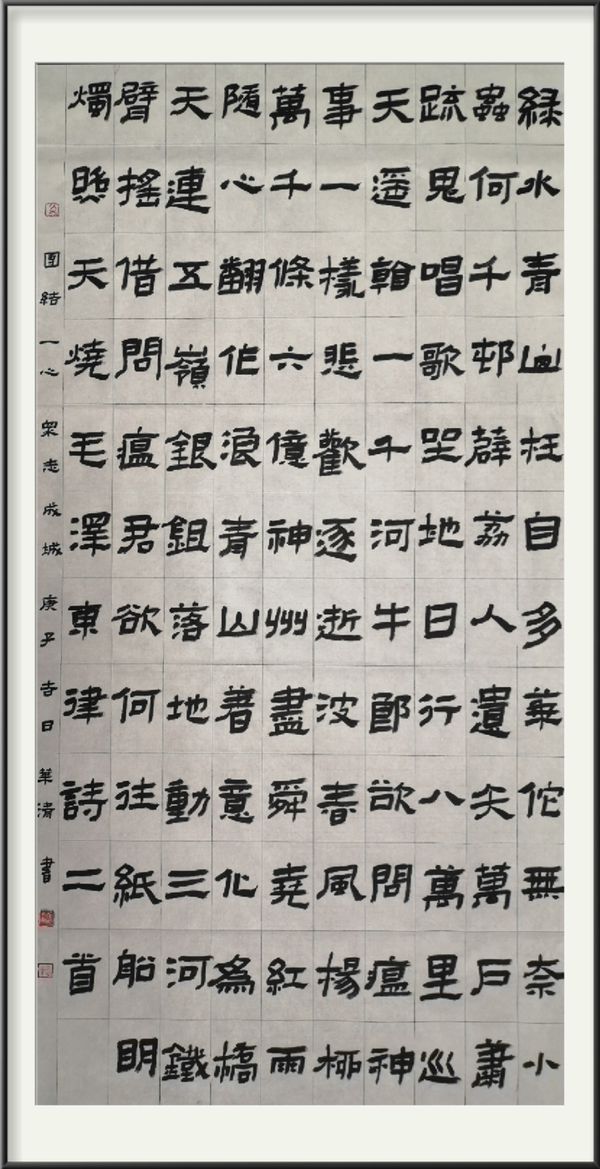 綠水青山枉自多華佗無奈小
蟲何千邨薜荔人遺矢萬戶蕭
疏鬼唱歌坐地日行八萬里巡
天遙看一千河牛郎欲問瘟神
事一樣悲歡逐逝波春風楊柳
萬千條六億神州盡舜堯紅雨
隨心翻作浪青山著意化為橋
天連五嶺銀鉏落地動三河鐵
臂搖借問瘟君欲何往紙船明
燭照天燒毛澤東律詩二首
團結一心眾志成城庚子吉日華清書